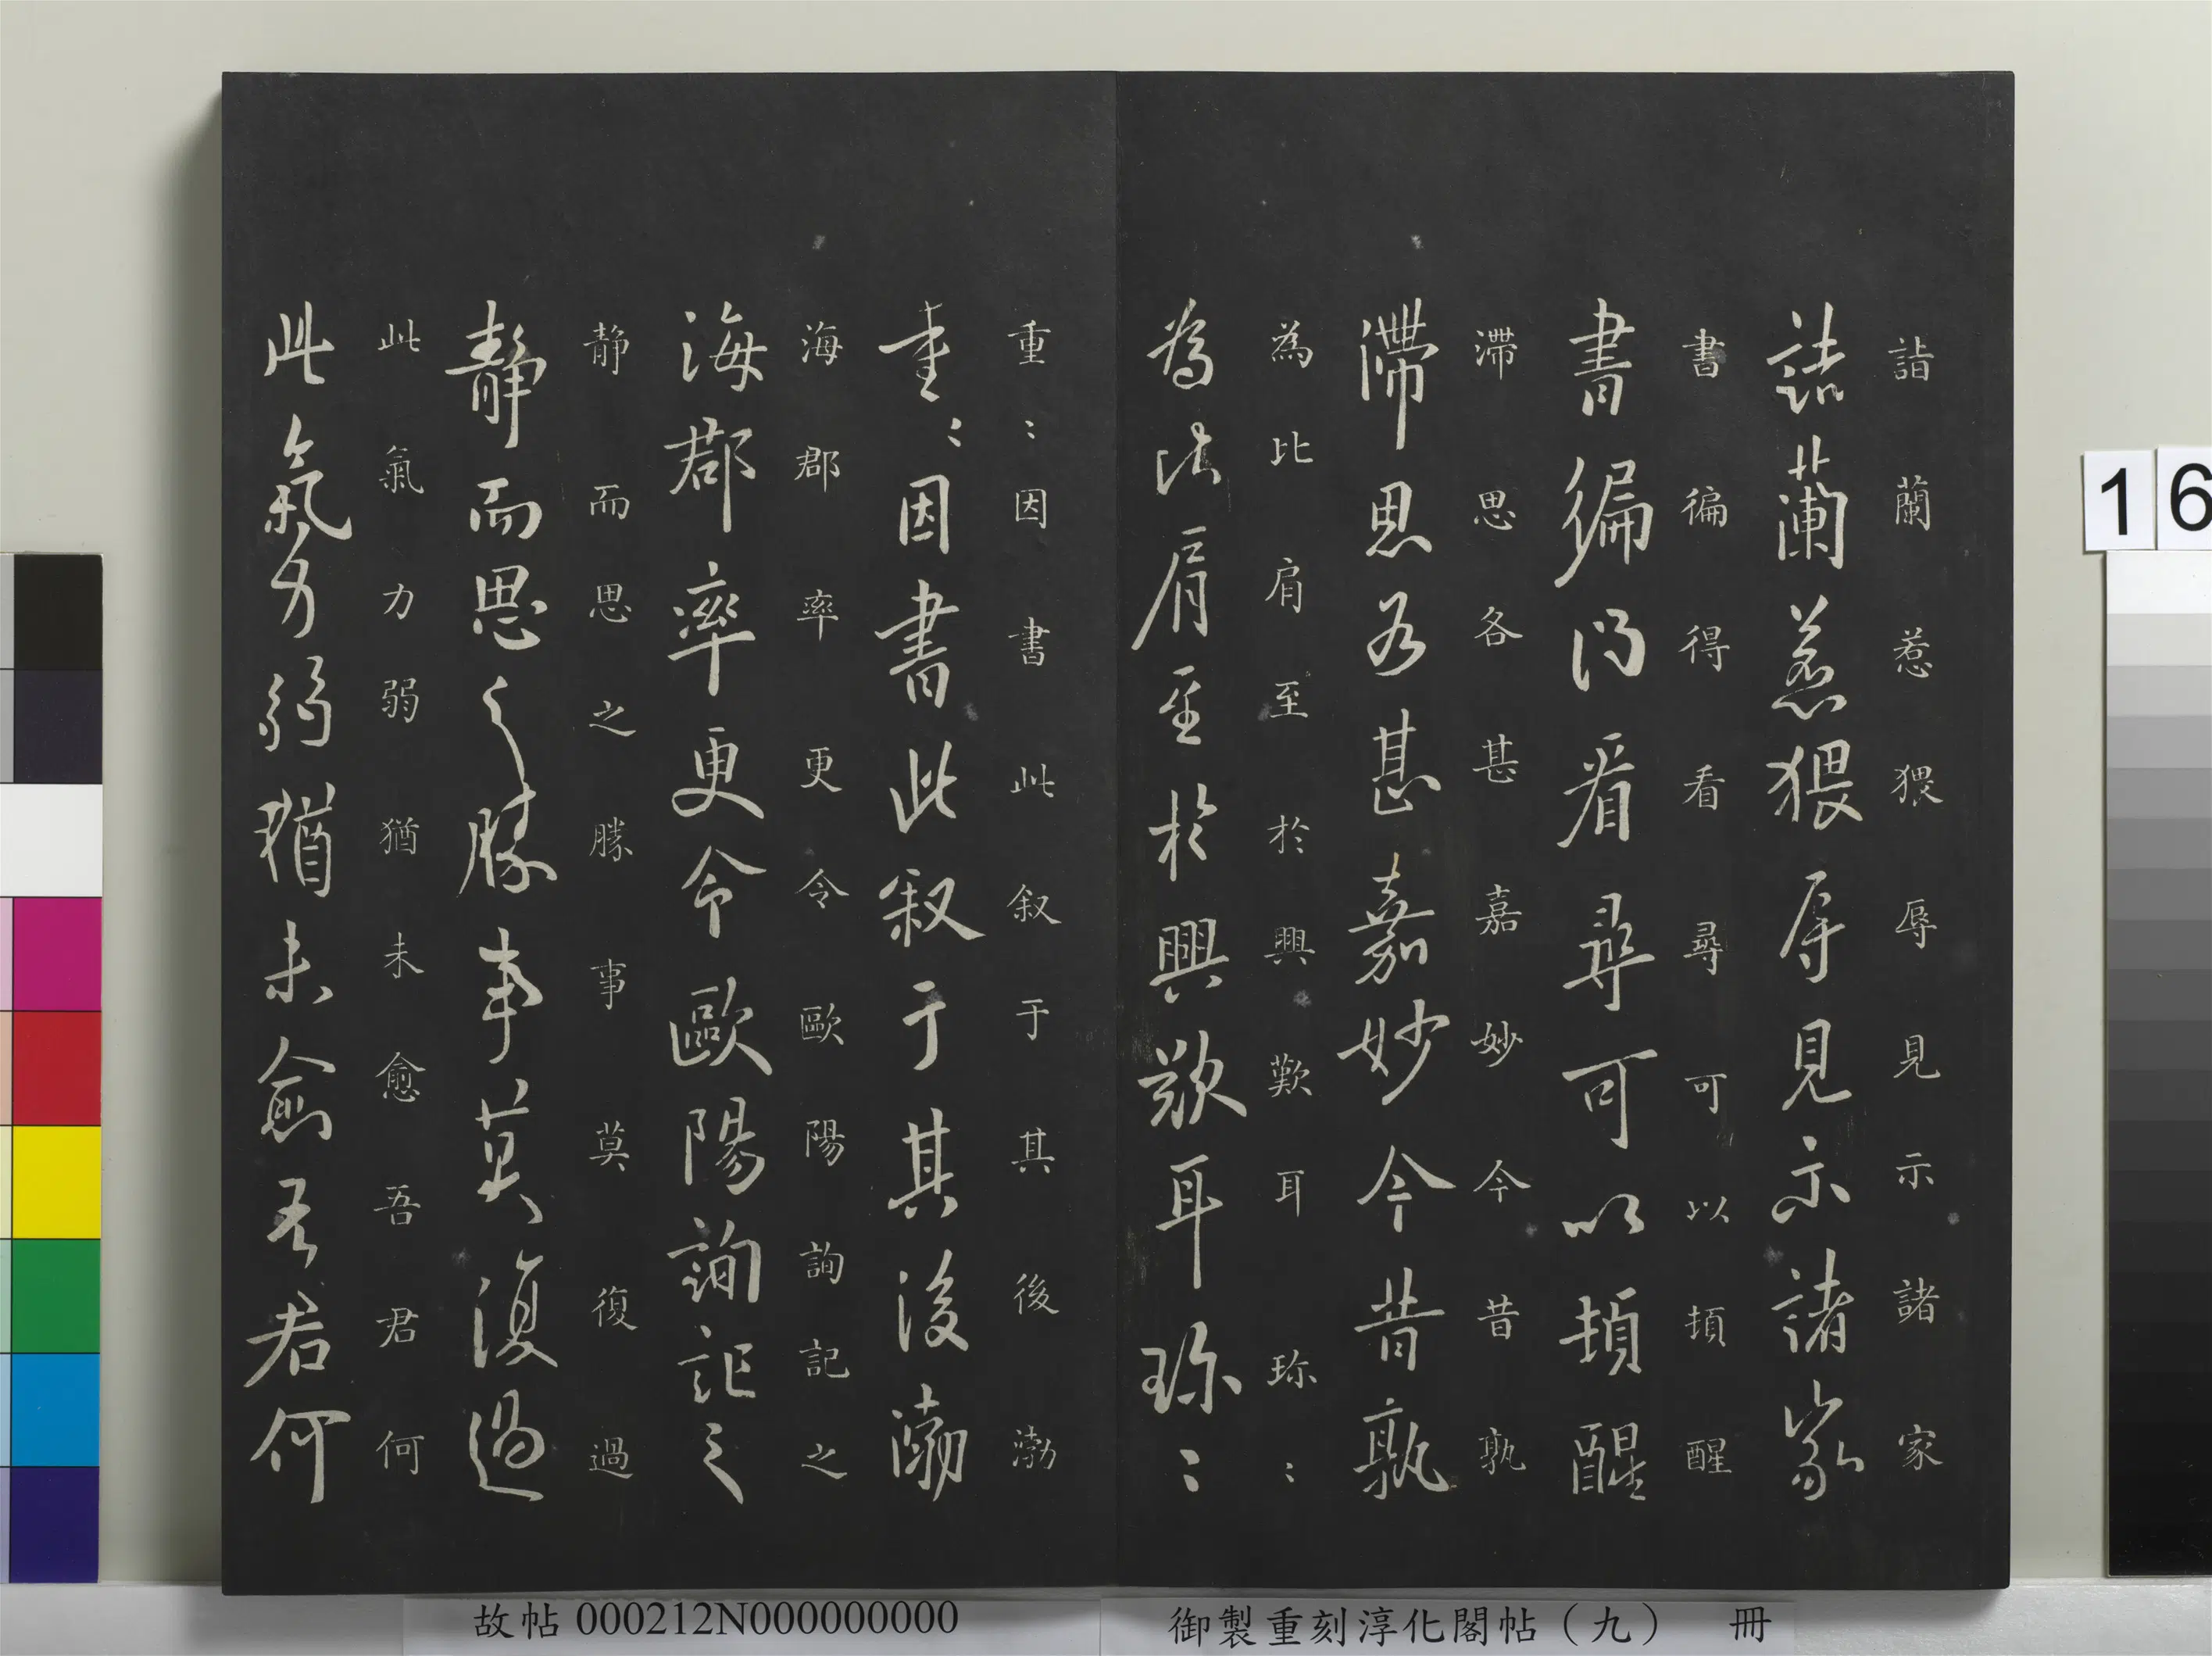 詣蘭惹猥辱見示諸家
詣蘭惹猥辱見示諸家
書徧得看尋可以頓醒
書徧得看尋可以頓醒
滯思各甚嘉妙今昔孰
滯思各甚嘉妙今昔孰
為比肩至於興歎耳珎〻
為比肩至於興歎耳珎〻
重〻因書此叙于其後渤
重〻因書此叙于其後渤
海郡率更令歐陽詢記之
海郡率更令歐陽詢記之
静而思之勝事莫復過
静而思之勝事莫復過
此氣力弱猶未愈吾君何
此氣力弱猶未愈吾君何
16
故帖 000212N000000000
御製重刻淳化閣帖（九） 冊